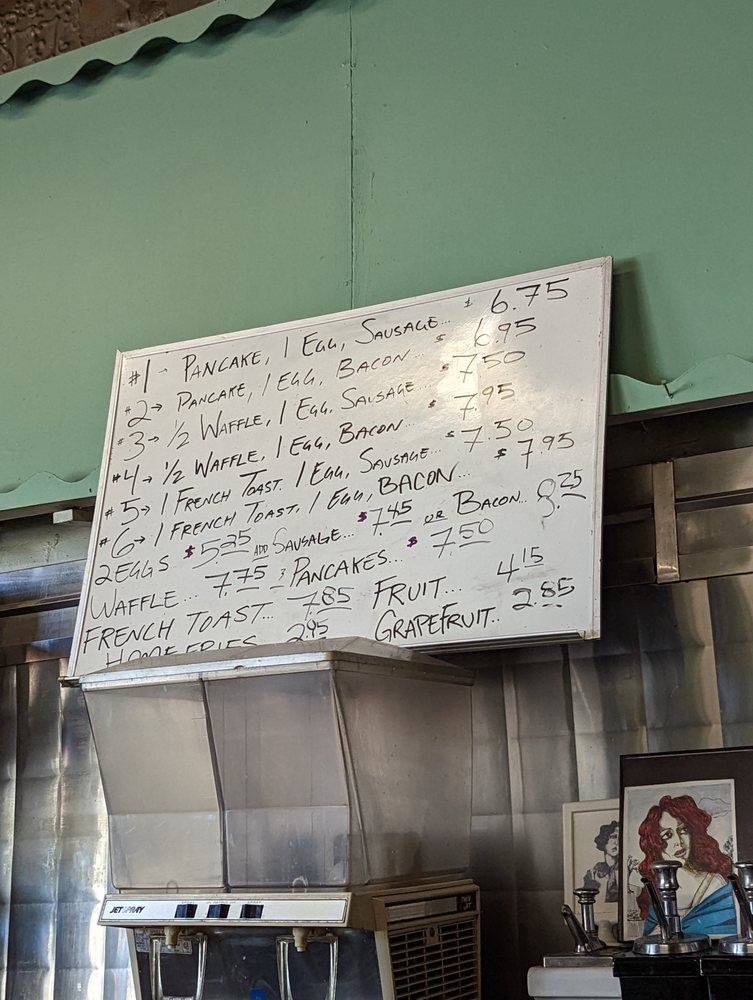 #1 → PANCAKE, 1 EGG, SAUSAGE... $ 6.75
#2 → PANCAKE, 1 EGG, BACON... $ 6.95
#3 → 1/2 WAFFLE, 1 EGG, SAUSAGE... $ 7.50
#4 → 1/2 WAFFLE, 1 EGG, BACON... $ 7.95
#5 → 1 FRENCH TOAST, 1 EGG, SAUSAGE... $ 7.50
#6 → 1 FRENCH TOAST, 1 EGG, BACON... $ 7.95
2 EGGS $5.25 ADD SAUSAGE... $7.45 OR BACON... 8.25
WAFFLE... 7.75 PANCAKES... $ 7.50
FRENCH TOAST... 7.85 FRUIT... 4.15
HOME FRIES 2.95 GRAPEFRUIT.. 2.85
JET SPRAY TWIN JET